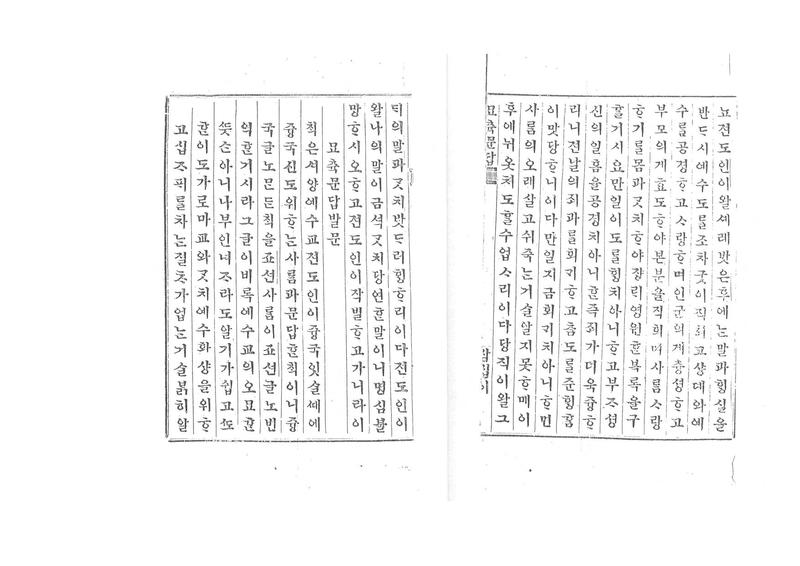 뇨젼도인이왈셰례밧은후에는말과힝실을
반ᄃᆞ시예수도를조차굿이직희고샹뎨와예
수를공경ᄒᆞ고ᄉᆞ랑ᄒᆞ며인군의게츙셩ᄒᆞ고
부모의게효도ᄒᆞ야본분을직희며사ᄅᆞᆷᄉᆞ랑
ᄒᆞ기를몸과ᄀᆞᆺ치ᄒᆞ야쟝릭영원ᄒᆞᆫ복록을구
ᄒᆞᆯ기시요만일이도를힝치아니ᄒᆞ고부즈셩
신의일홈을공경치아니ᄒᆞᆫ즉죄가더욱즁ᄒᆞ
리니젼날의죄과를회기ᄒᆞ고춤도를쥰힝ᄒᆞᆷ
이맛당ᄒᆞ니이다만일지금회기치아니ᄒᆞ면
사ᄅᆞᆷ의오래살고쉬죽는거슬알지못ᄒᆞ매이
후에뉘웃쳐도ᄒᆞᆯ수업ᄉᆞ리이다당직이왈그
묘축문답
딕의말과ᄀᆞᆺ치밧드러힝ᄒᆞ리이다젼도인이
왈나의말이금셕ᄀᆞᆺ치당연ᄒᆞᆫ말이니명심불
망ᄒᆞ시오ᄒᆞ고젼도인이작별ᄒᆞ고가니라이
묘축문답발문
칙은셔양예수교젼도인이즁국잇슬쌔에
즁국신도위ᄒᆞ는사ᄅᆞᆷ과문답ᄒᆞᆫ칙이니즁
국글노문든칙을죠션사ᄅᆞᆷ이죠션글노번
역ᄒᆞᆫ기시라그글이비록예수교의오묘ᄒᆞᆫ
ᄯᅳᆺ슨아니나부인녀ᄌᆞ라도알기가쉽고ᄯᅩ
ᄒᆞᆫ이도가로마교와ᄀᆞᆺ치예수화샹을위ᄒᆞ
고십ᄌᆞ픠를차는질츠가업는거슬붉히알